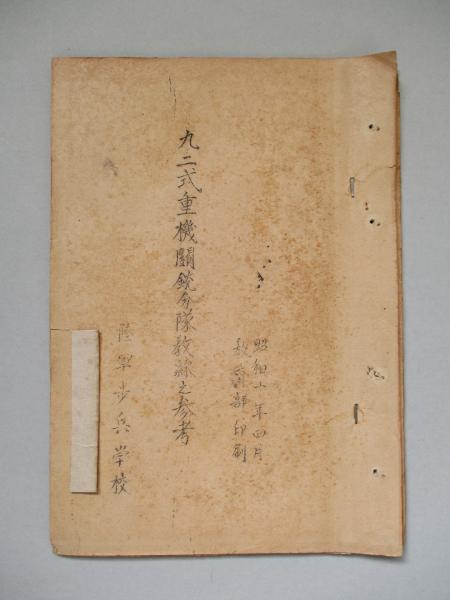 昭和十年四月
教育部印刷
九二式重機關銃分隊教練之参考
陸軍歩兵学校